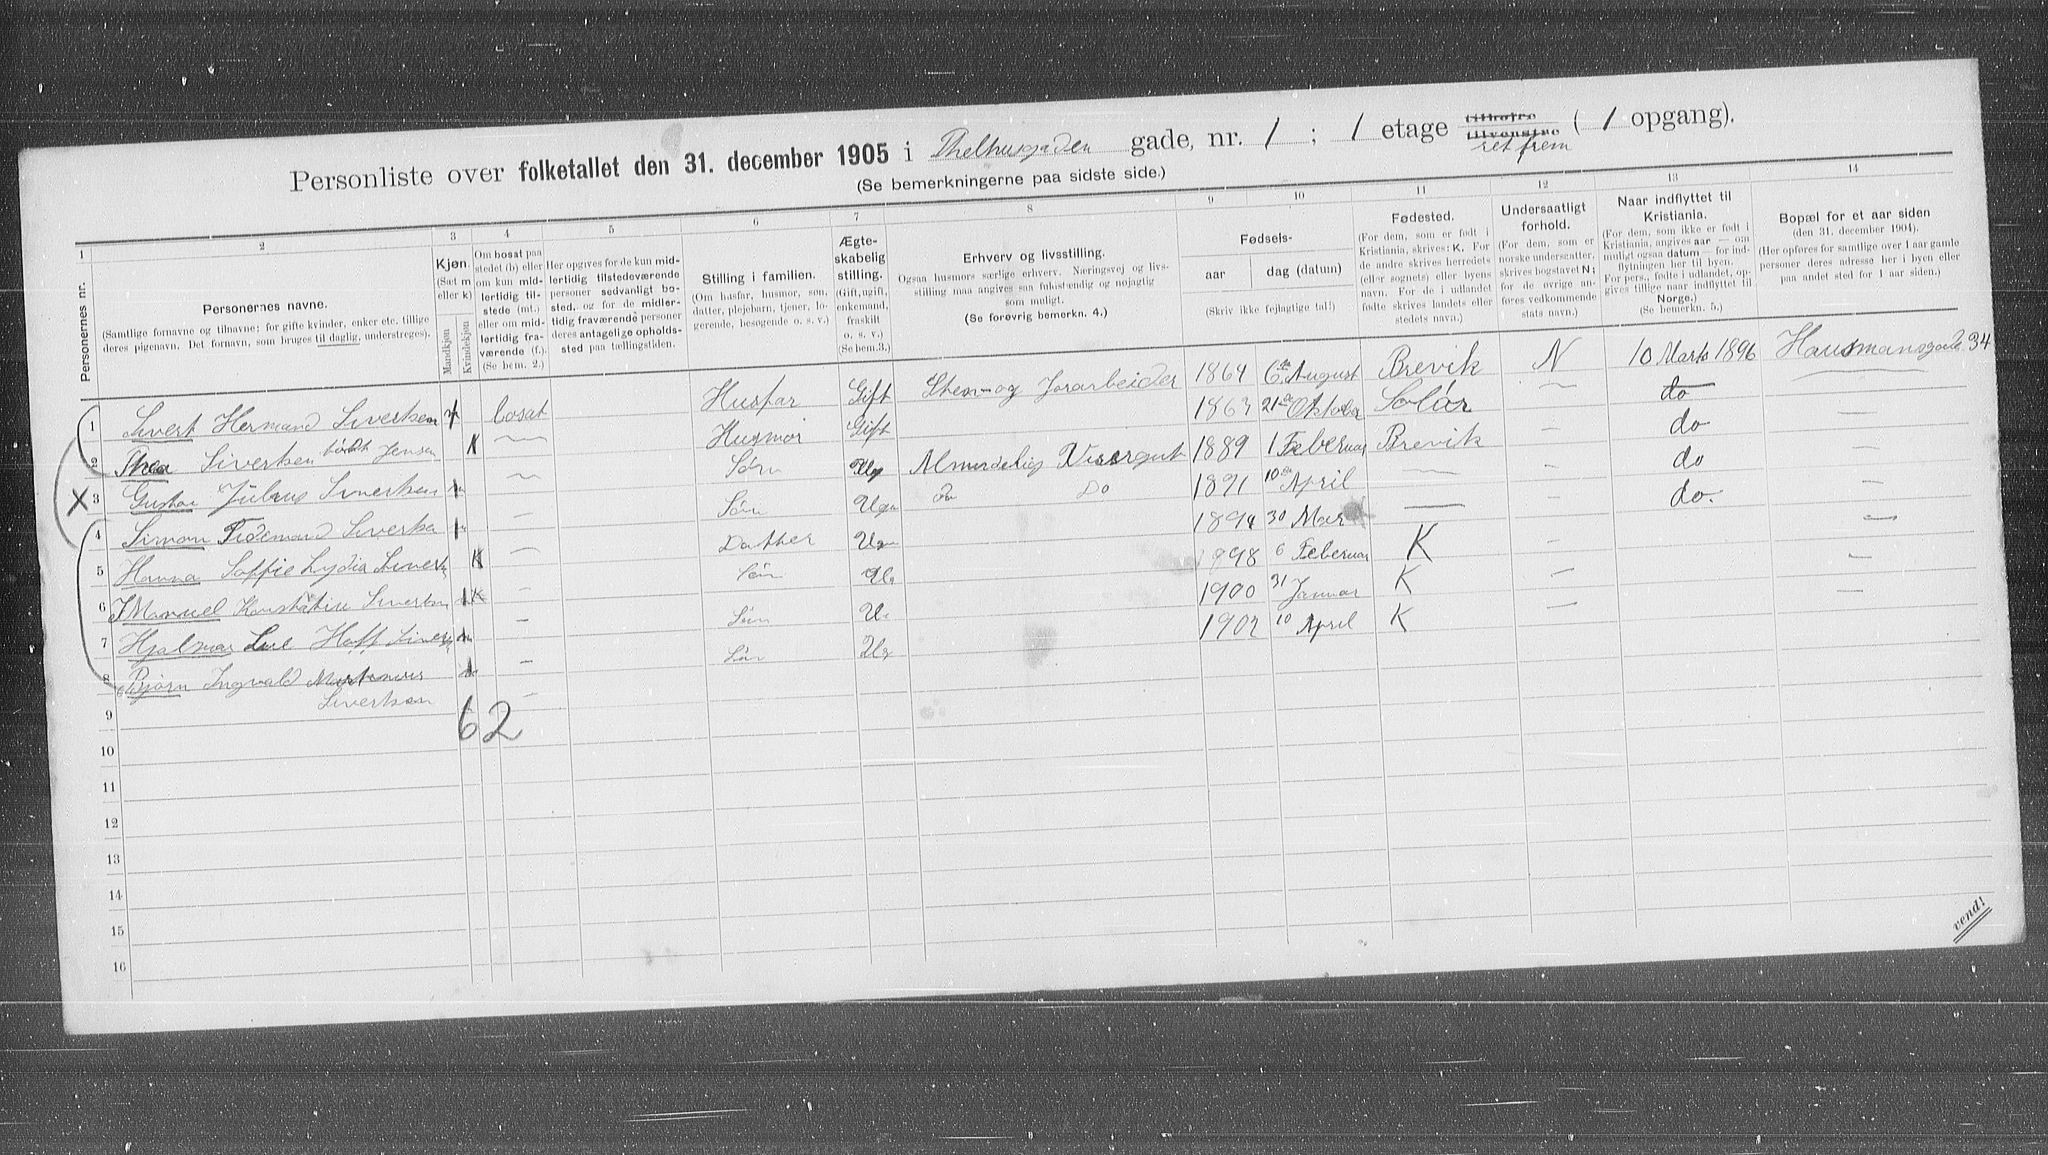 Personliste over folketallet den 31. december 1905 i Thelhusgaden gade, nr. 1 ; 1 etage tilhøire tilvenstre ret frem ( 1 opgang).
(Se bemerkningerne paa sidste side.)
1 2 3 4 5 6 7 8 9 10 11 12 13 14
Personernes nr.
Personernes navne.
(Samtlige fornavne og tilnavne; for gifte kvinder, enker etc. tillige
deres pigenavn. Det fornavn, som bruges til daglig, understreges).
Kjøn.
(Sæt m
eller k)
Mandkjøn
Kvindekjøn
Om bosat paa
stedet (b) eller
om kun mid-
lertidig til-
stede (mt.)
eller om mid-
lertidig fra-
værende (f.)
(Se bem. 2.)
Her opgives for de kun mid-
lertidig tilstedeværende
personer sedvanligt bo-
sted, og for de midler-
tidig fraværende personer
deres antagelige opholds-
sted paa tællingstiden.
Stilling i familien.
(Om husfar, husmor, søn,
datter, plejebarn, tjener, lo-
gerende, besøgende o. s. v.)
Ægte-
skabelig
stilling.
(Gift, ugift,
enkemand,
fraskilt
o. s. v.)
(Se bem.3.)
Erhverv og livsstilling.
Ogsaa husmors særlige erhverv. Næringsvej og livs-
stilling maa angives saa fuldstændig og nøjagtig
som muligt.
(Se forøvrig bemerkn. 4.)
Fødsels-
aar dag (datum)
(Skriv ikke fejlagtige tal!)
Fødested.
(For dem, som er født i
Kristiania, skrives: K. For
de andre skrives herredets
(eller sognets) eller byens
navn. For de i udlandet
fødte skrives landets eller
stedets navn.)
Undersaatligt
forhold.
(For dem, som er
norske undersaatter,
skrives bogstavet N;
for de øvrige an-
føres vedkommende
stats navn.)
Naar indflyttet til
Kristiania.
(For dem, som ikke er født i
Kristiania, angives aar — om
muligt ogsaa datum — for ind-
flytningen her til byen.
For pers., fødte i udlandet, op-
gives tillige naar indflyttet til
Norge.)
(Se bemerkn. 5.)
Bopæl for et aar siden
(den 31. december 1904).
(Her opføres for samtlige over 1 aar gamle
personer deres adresse her i byen eller
paa andet sted for 1 aar siden.)
1 Sivert Hermand Sivertsen m bosat Husfar Gift Sten- og Jorarbeider 1864 6te August Brevik N 10 Marts 1896 Hausmansgade 34
2 Thea Sivertsen født Jensen K Husmor Gift 1863 21de Oktober Solør do
3 Gustav Julius Sivertsen m Sön Ug Almindelig Visergut 1889 1 Februar Brevik do
4 Simon Tidemand Sivertsen m Sön Ug do Do 1891 10de April do
5 Hanna Soffie Lydia Sivertsen K Datter Ug 1894 30 Mai do.
6 Manuel Konstatin Sivertsen K Sön Ug 1898 6 Februar K
7 Hjalmar Hoff Sivertsen m Sön Ug 1900 31 Januar K
8 Bjørn Ingvald Martinius Sivertsen Sön Ug 1902 10 April K
X
62
9
10
11
12
13
14
15
16
vend!